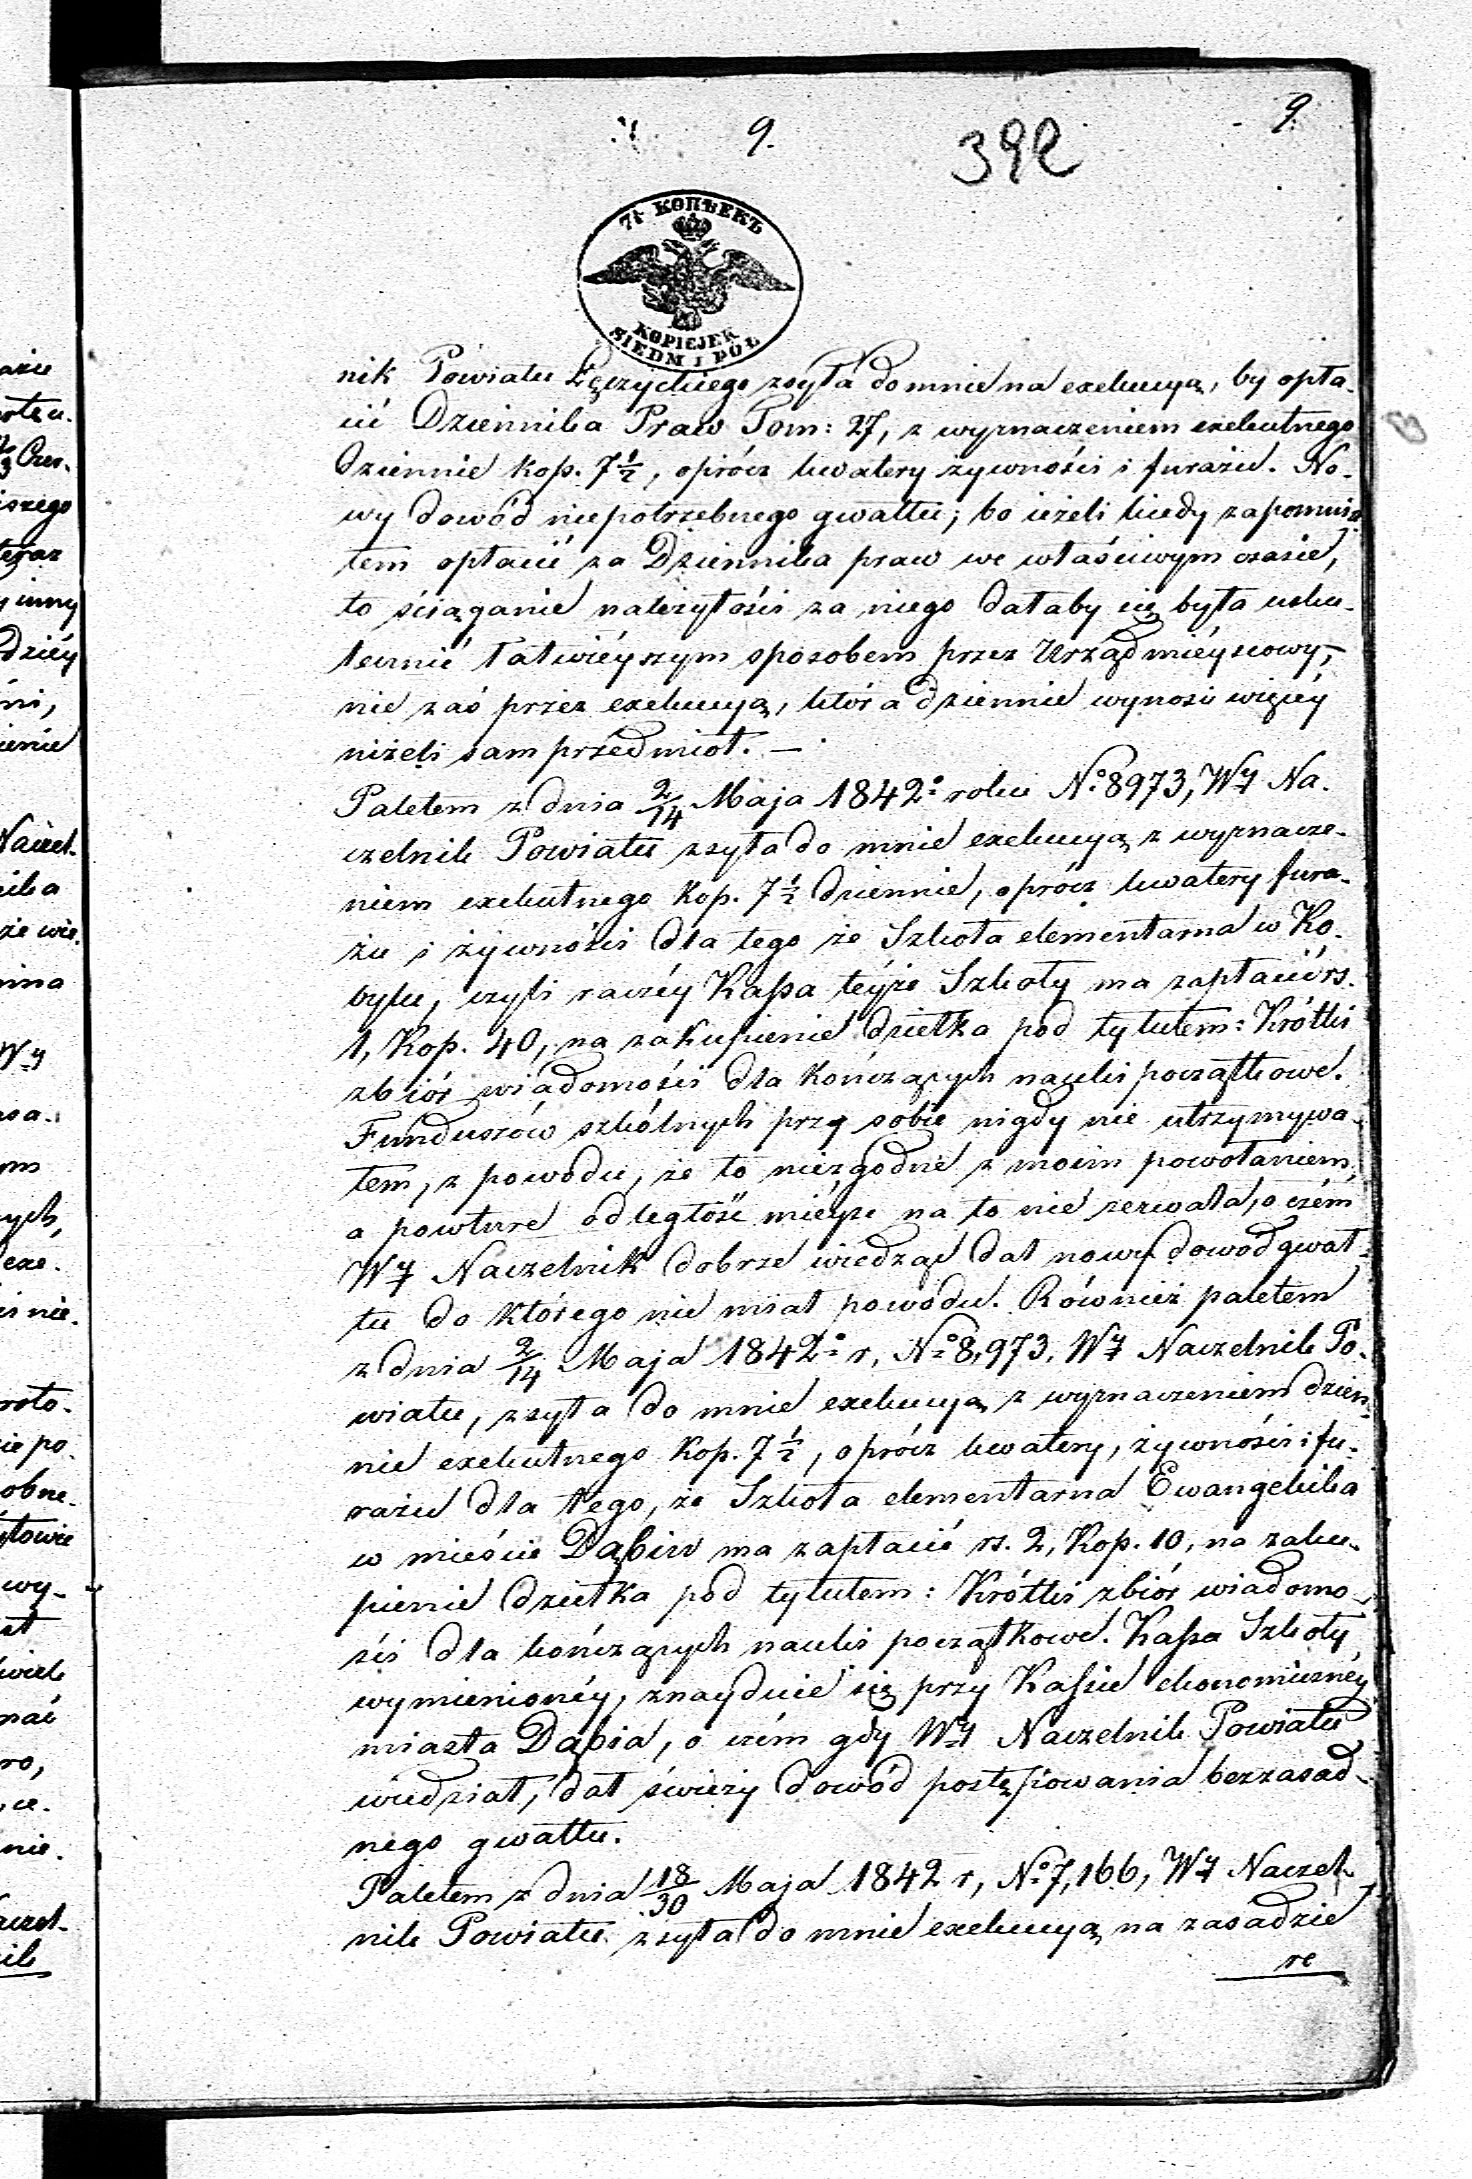 9. 392 9.
7½ КОПѢЕКЪ
KOPIEJEK
SIEDM I PÓŁ
nik Powiatu Łęczyckiego zsyła do mnie na exekucyą, by opła-
cić Dziennika Praw Tom: 27, z wyznaczeniem exekutnego
dziennie kop. 7½, oprócz kwatery żywności i furażu. No-
wy dowód niepotrzebnego gwałtu; bo ieżeli kiedy zapomnia-
łem opłacić za Dziennika praw we właściwym czasie,
to ściąganie należytości za niego dałaby się była usku-
tecznić łatwiéyszym sposobem przez Urząd mieyscowy,
nie zaś przez exekucyą, która dziennie wynosi więcéy
niżeli sam przedmiot. —
Paletem z dnia 2/14 Maja 1842º roku Nº 8973, Wy Na-
czelnik Powiatu zsyła do mnie exekucyą z wyznacze-
niem exekutnego Kop. 7½ dziennie, oprócz kwatery fura-
żu i żywności dla tego że Szkoła elementarna w Ko-
byłu, czyli raczéy Kassa téyże Szkoły ma zapłacić rs.
1, Kop. 40, na zakupienie dziełka pod tytułem: Krótki
zbiór wiadomości dla kończących nauki początkowe.
Funduszów szkólnych przy sobie nigdy nie utrzymywa-
łem, z powodu, że to niezgodne z moim powołaniem,
a powtore odległość mieysc na to nie zezwala, o czém
Wy Naczelnik dobrze wiedząc dał nowy dowód gwał-
tu do którego nie miał powodu. Również paletem
z dnia 2/14 Maja 1842º r, Nº 8,973, Wy Naczelnik Po-
wiatu, zsyła do mnie exekucyą z wyznaczeniem dzien-
nie exekutnego Kop. 7½, oprócz kwatery, żywności i fu-
rażu dla tego, że Szkoła elementarna Ewangelicka
w mieście Dąbiu ma zapłacić rs. 2, Kop. 10, na zaku-
pienie dziełka pod tytułem: Krótki zbiór wiadomo-
ści dla kończących nauki początkowe. Kassa Szkoły
wymienionéy, znayduie się przy Kassie ekonomicznéy
miasta Dąbia, o czém gdy Wy Naczelnik Powiatu
wiedział, dał świeży dowód postępowania bezzasad-
nego gwałtu.
Paletem z dnia 18/30 Maja 1842 r, Nº 7,166, Wy Naczel-
nik Powiatu zsyła do mnie exekucyą na zasadzie
re